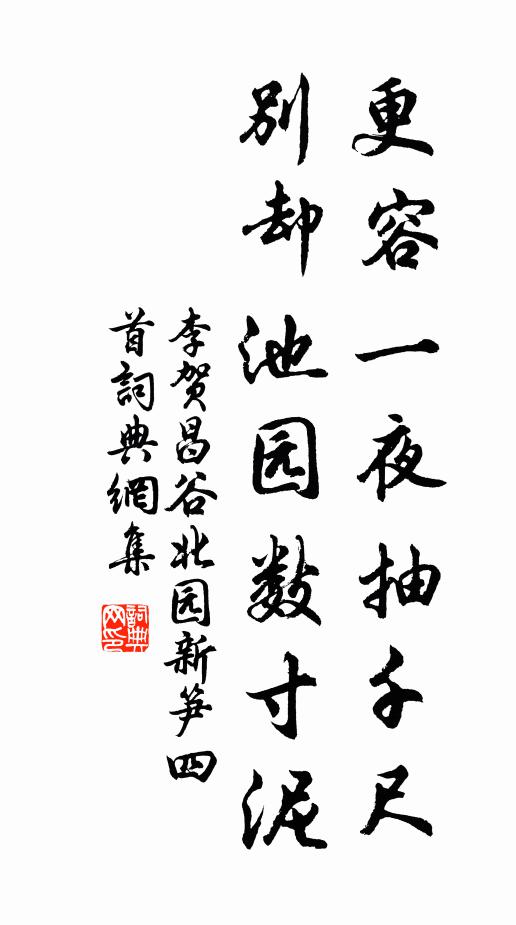 更容一夜抽千尺
别却池园数寸泥
李贺昌谷北园新笋四
首詞典網集
詞典网印